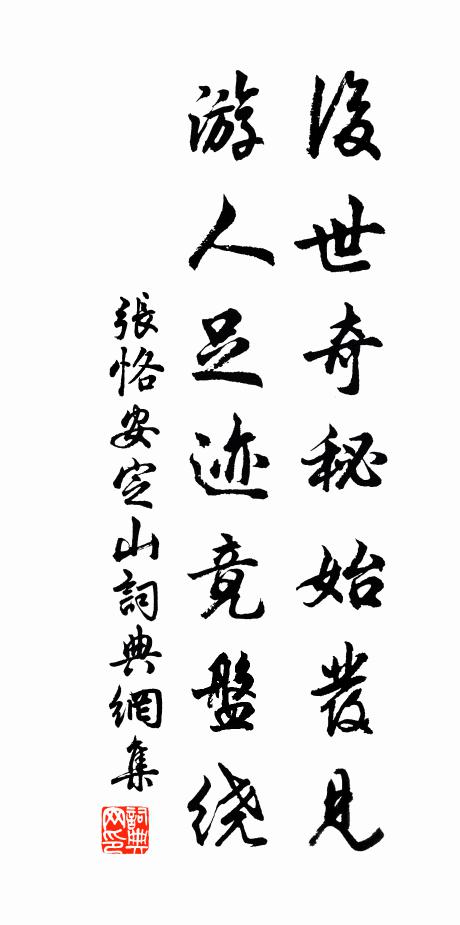 後世奇秘始發見
游人足迹竟盤绕
張恪安定山詞典網集
詞典网印